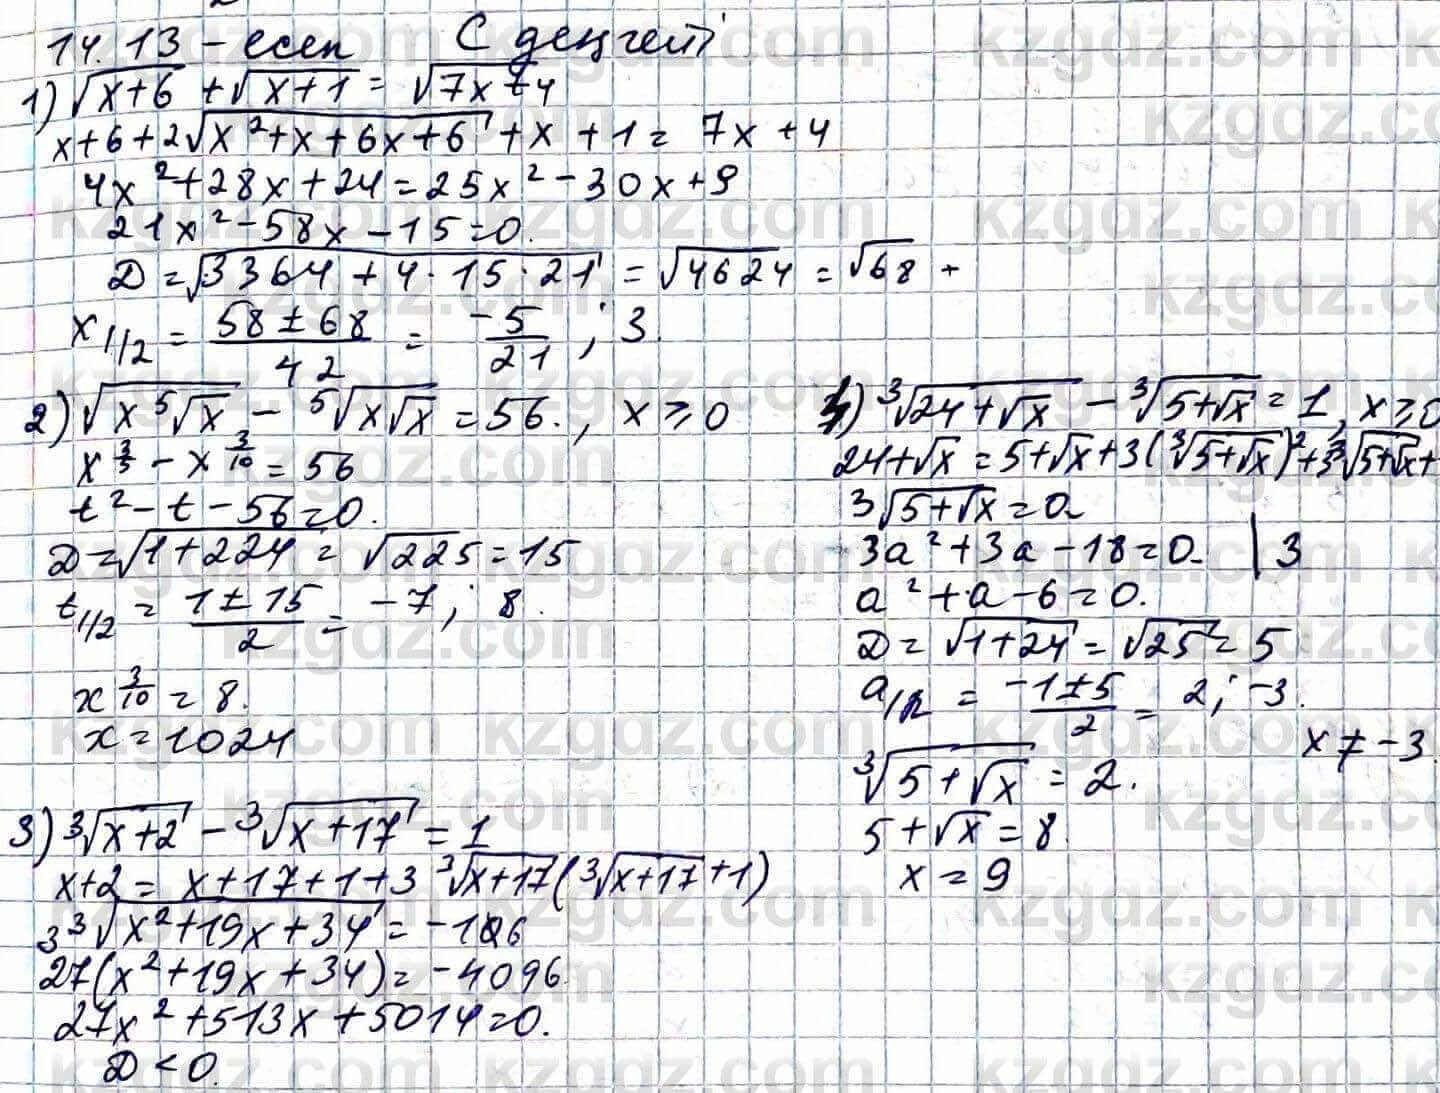 14.13 – есеп С деңгейі
1) √(x+6) + √(x+1) = √(7x+4)
x+6+2√(x²+x+6x+6) + x + 1 = 7x + 4
4x²+28x+24=25x²-30x+9
21x²-58x-15=0.
D=√(3364+4·15·21) = √4624 = √68
x1/2 = (58±68)/42 = -5/21 ; 3.
2) √(x ⁵√x) - ⁵√(x√x) = 56. , x ≥ 0
x^(3/5) - x^(3/10) = 56
t² - t - 56=0.
D=√(1+224) = √225=15
t1/2 = (1±15)/2 = -7 ; 8.
x^(3/10) = 8.
x=1024
3) ³√(x+2) - ³√(x+17) = 1
x+2 = x+17+1+3 ³√(x+17) (³√(x+17)+1)
3 ³√(x²+19x+34) = -16
27(x²+19x+34)=-4096
27x²+513x+5014=0.
D<0.
4) ³√(24+√x) - ³√(5+√x) = 1, x≥0
24+√x = 5+√x+3(³√(5+√x))²+3 ³√(5+√x)+
³√(5+√x)=a
3a²+3a-18=0. | 3
a²+a-6=0.
D=√(1+24)=√25=5
a1/2 = (-1±5)/2 = 2; -3.
x ≠ -3.
³√(5+√x) = 2.
5+√x=8.
x = 9
kzgdz.com